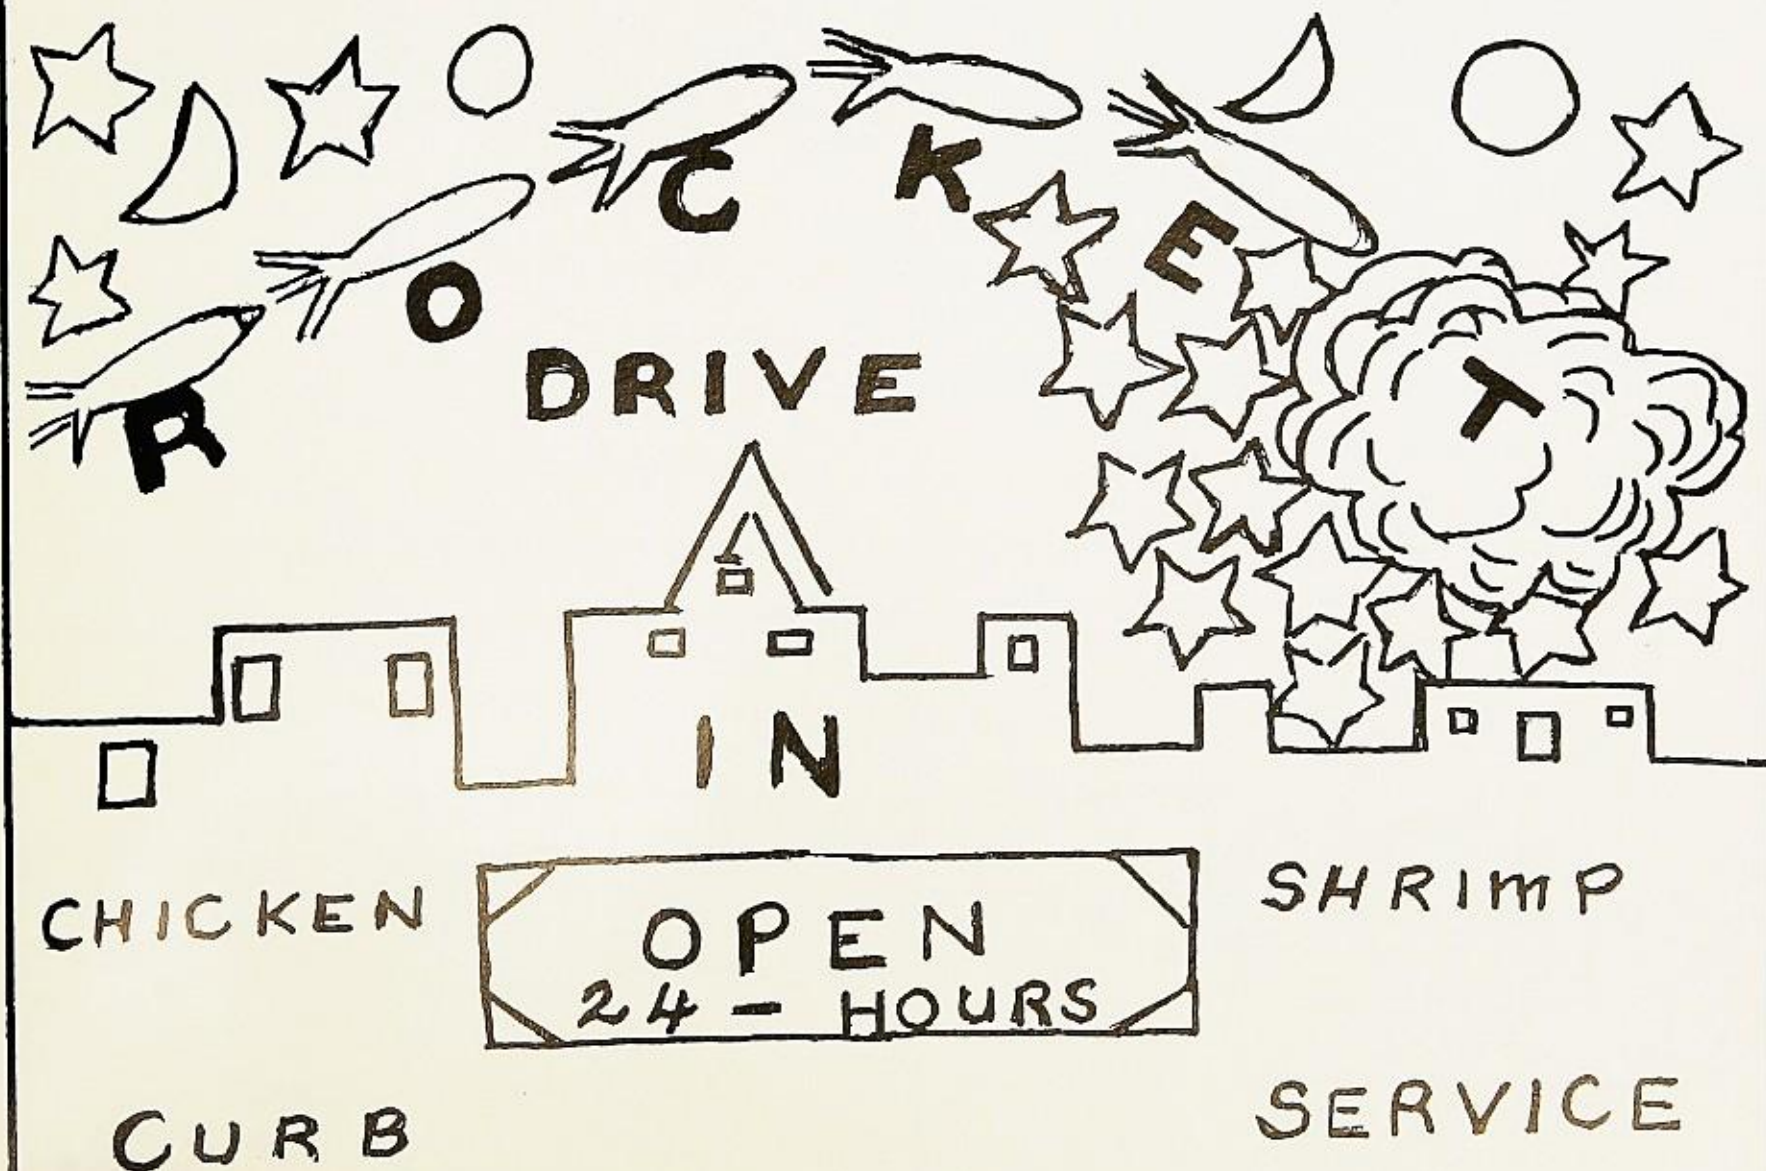 ROCKET
DRIVE
IN
CHICKEN
OPEN
24-HOURS
SHRIMP
CURB
SERVICE